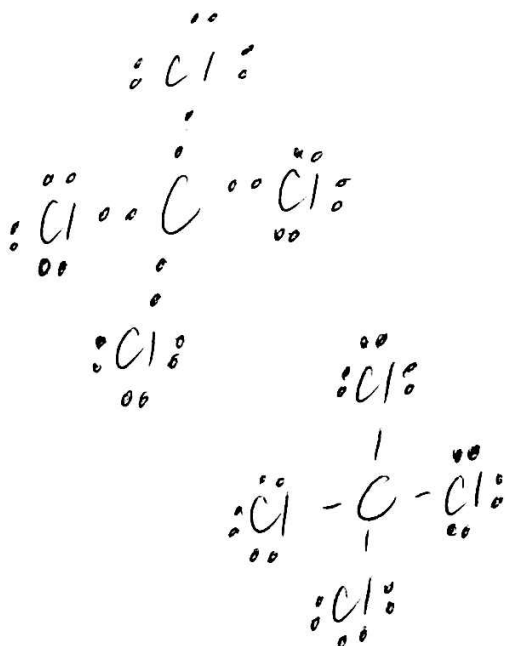 Cl
Cl C Cl
Cl
Cl
Cl - C - Cl
Cl